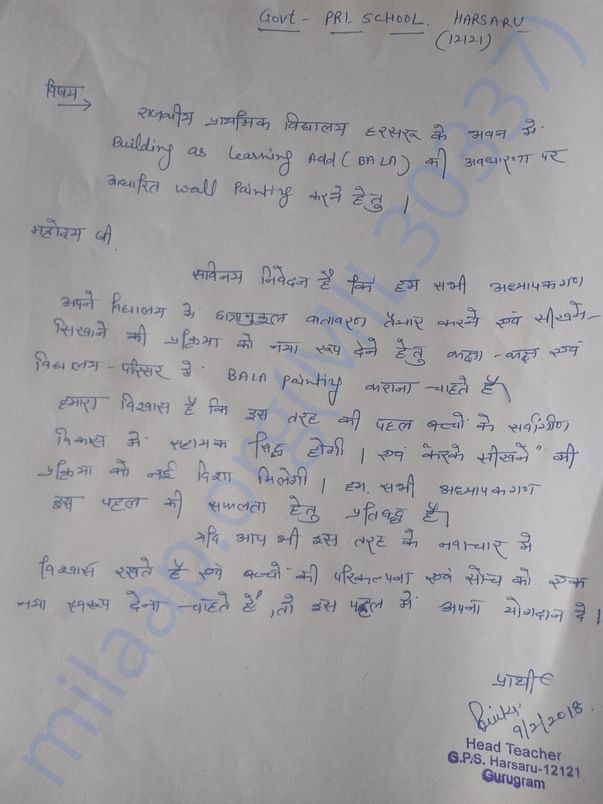 Govt - PRI. SCHOOL. HARSARU
(12121)
विषय →
राजकीय प्राथमिक विद्यालय हरसरू के भवन में
Building as Learning Add (BALA) की अवधारणा पर
आधारित wall Painting करने हेतु ।
महोदय जी,
सविनय निवेदन है कि हम सभी अध्यापकगण
अपने विद्यालय में छात्रानुकूल वातावरण तैयार करने एवं सीखने-
सिखाने की प्रक्रिया को नया रूप देने हेतु कक्षा-कक्ष एवं
विद्यालय-परिसर में BALA Painting कराना चाहते हैं।
हमारा विश्वास है कि इस तरह की पहल बच्चों के सर्वांगीण
विकास में सहायक सिद्ध होगी । एवं करके सीखने" की
प्रक्रिया को नई दिशा मिलेगी । हम सभी अध्यापकगण
इस पहल की सफलता हेतु प्रतिबद्ध हैं।
यदि आप भी इस तरह के नवाचार में
विश्वास रखते है एवं बच्चों की परिकल्पना एवं सोच को एक
नया स्वरूप देना चाहते हैं, तो इस पहल में अपना योगदान दे ।
प्रार्थी
9/2/2018
Head Teacher
G.P.S. Harsaru-12121
Gurugram
milaap.org(MIL30337)